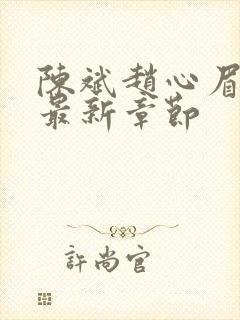 陳斌趙心眉
最新章節
許尚官